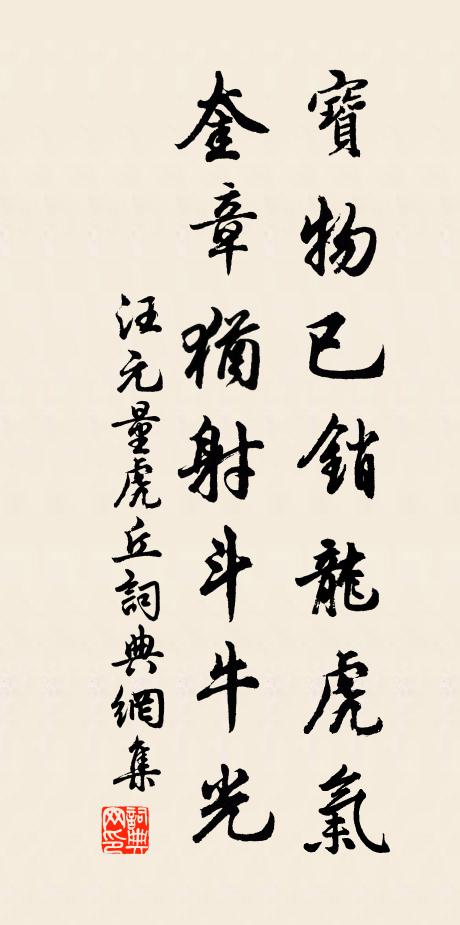 寶物已銷龍虎氣
奎章猶射斗牛光
汪元量虎丘詞典網集
詞典网印